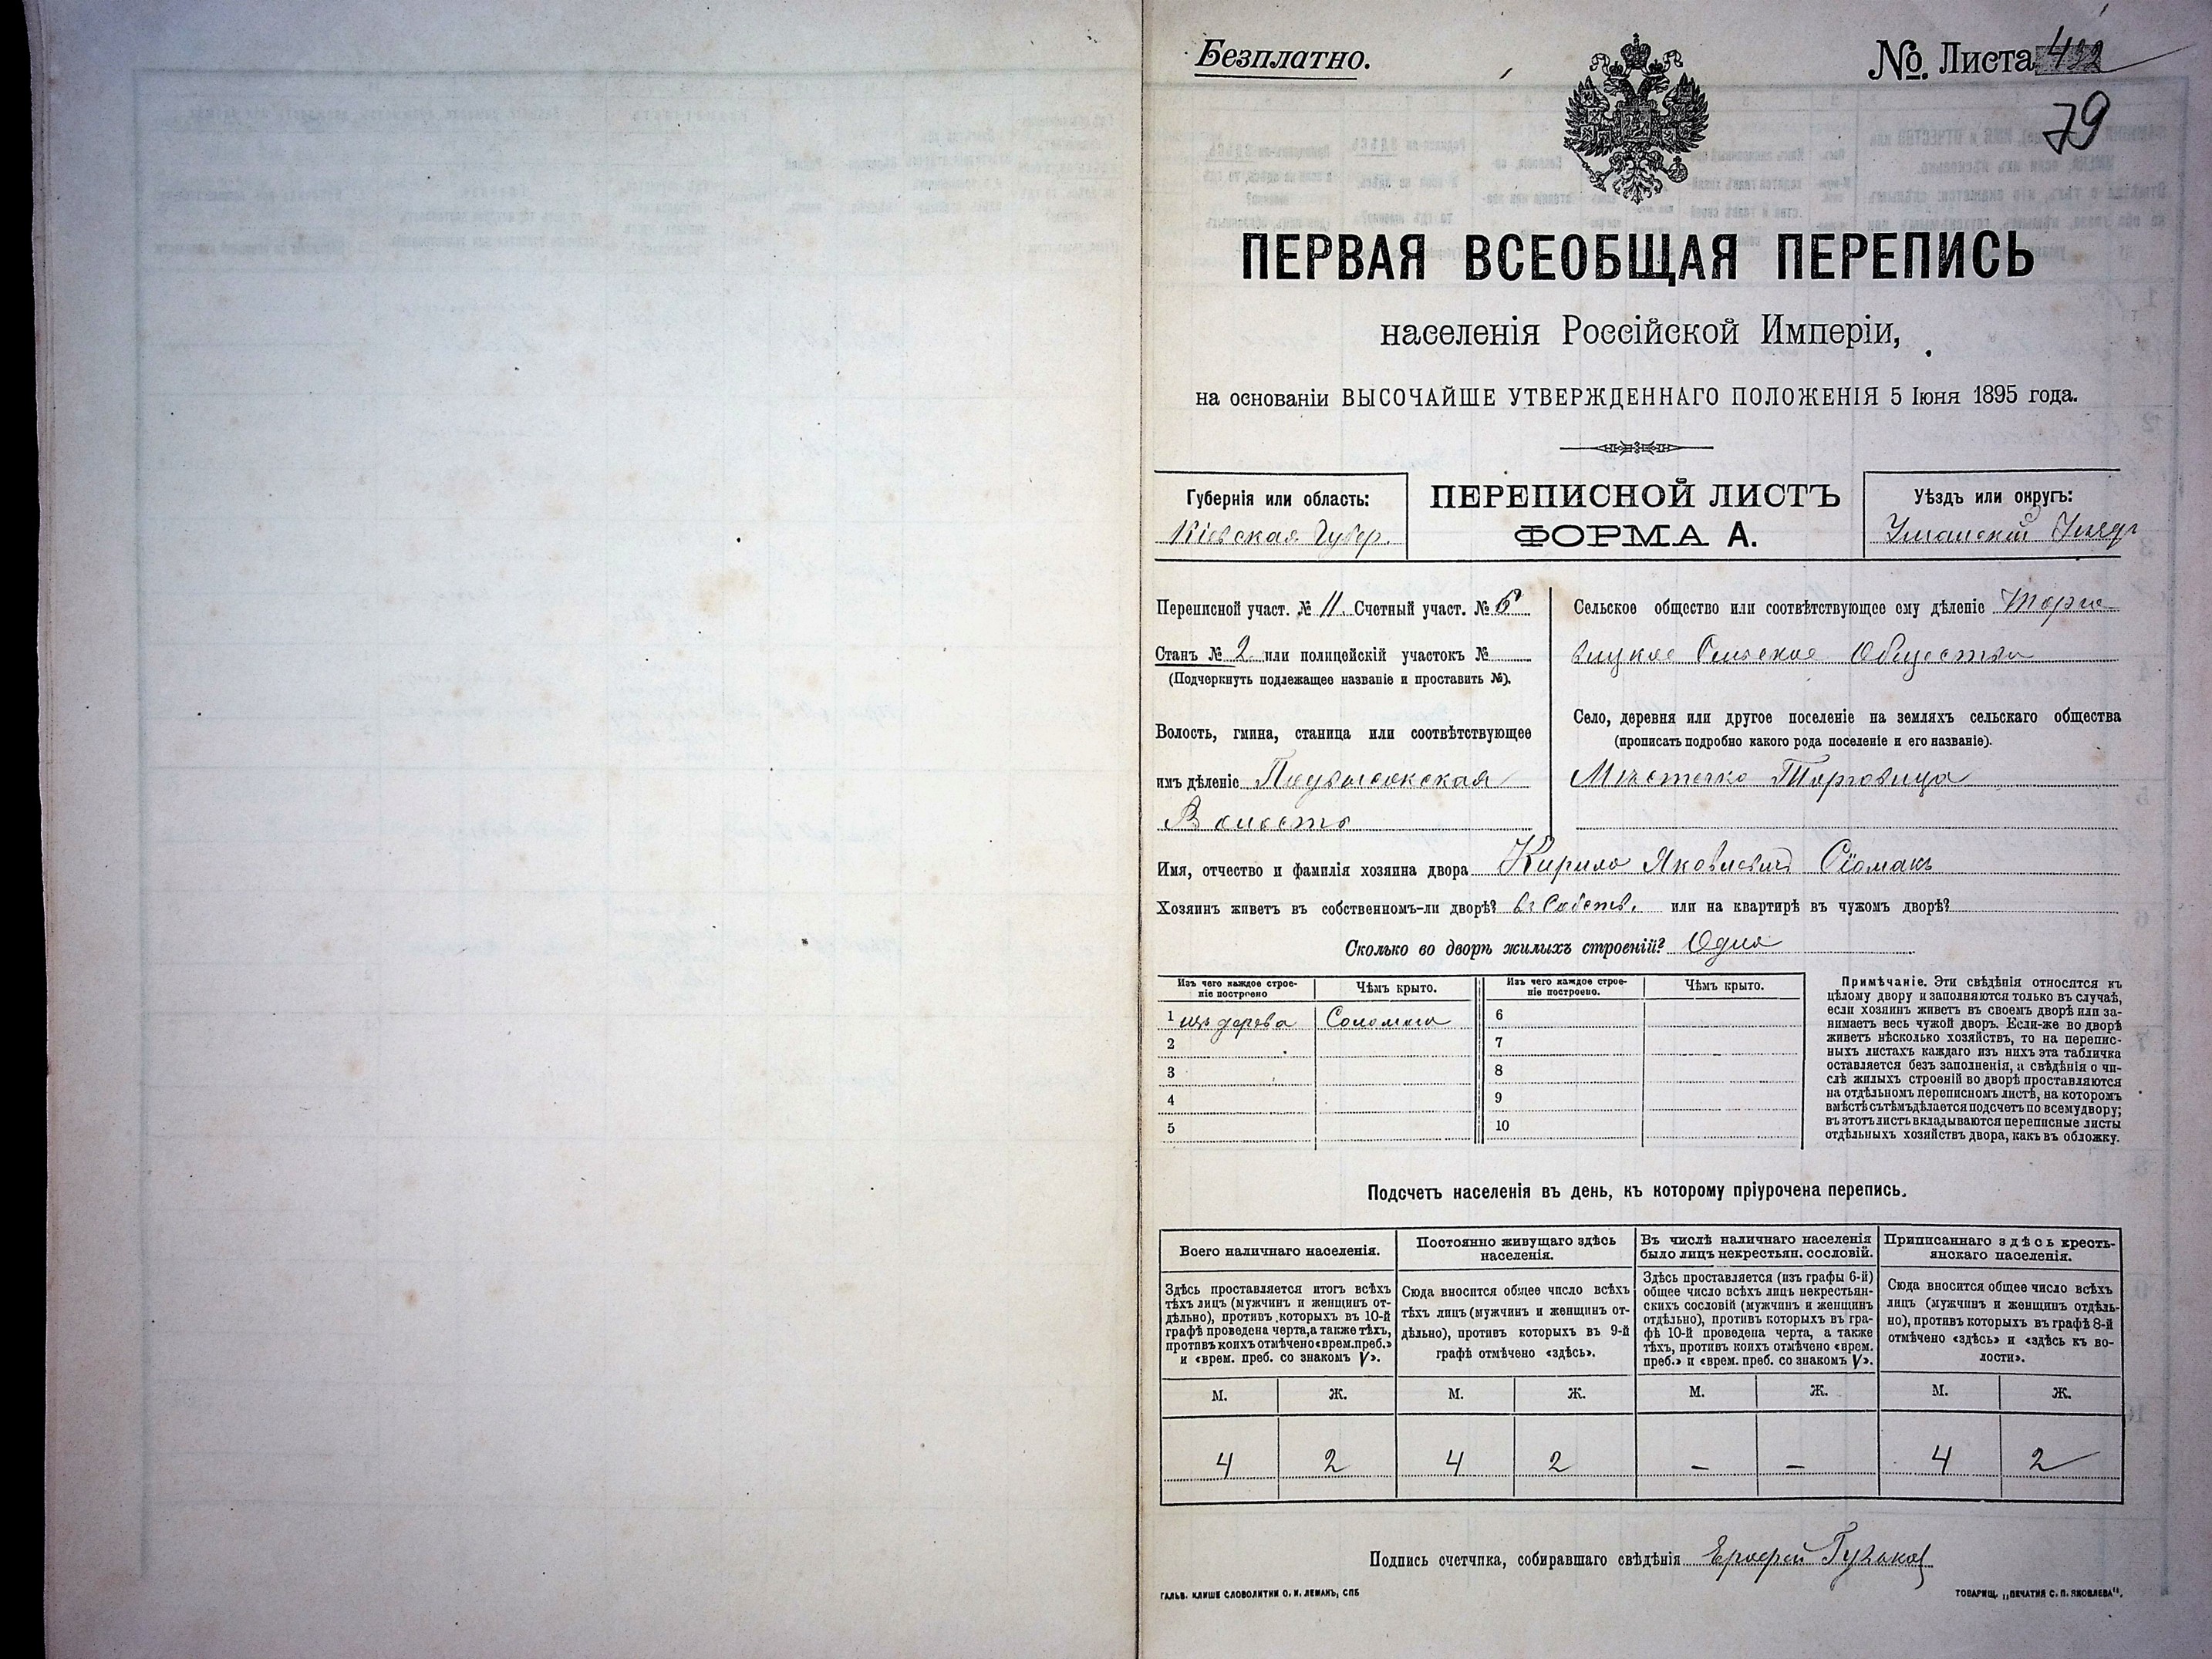 Безплатно.
№ Листа
79
ПЕРВАЯ ВСЕОБЩАЯ ПЕРЕПИСЬ
населенія Россійской Имперіи,
на основаніи ВЫСОЧАЙШЕ УТВЕРЖДЕННАГО ПОЛОЖЕНІЯ 5 Іюня 1895 года.
Губернія или область:
Кіевская Губер.
ПЕРЕПИСНОЙ ЛИСТЪ
ФОРМА А.
Уѣздъ или округъ:
Уманскій Уѣздъ
Переписной участ. № 11. Счетный участ. № 6
Станъ № 2 или полицейскій участокъ №
(Подчеркнуть подлежащее названіе и проставить №).
Волость, гмина, станица или соотвѣтствующее
имъ дѣленіе Подвысокская
Волость
Сельское общество или соотвѣтствующее ему дѣленіе Торго
вицкое Сельское Общество
Село, деревня или другое поселеніе на земляхъ сельскаго общества
(прописать подробно какого рода поселеніе и его названіе).
Мѣстечко Торговица
Имя, отчество и фамилія хозяина двора Кирило Яковлевичъ Сіомакъ
Хозяинъ живетъ въ собственномъ-ли дворѣ? въ Собств. или на квартирѣ въ чужомъ дворѣ?
Сколько во дворѣ жилыхъ строеній? Одно
Изъ чего каждое строе-
ніе построено
Чѣмъ крыто.
Изъ чего каждое строе-
ніе построено.
Чѣмъ крыто.
1 изъ дерева Соломою 6
2 7
3 8
4 9
5 10
Примѣчаніе. Эти свѣдѣнія относятся къ
цѣлому двору и заполняются только въ случаѣ,
если хозяинъ живетъ въ своемъ дворѣ или за-
нимаетъ весь чужой дворъ. Если-же во дворѣ
живетъ нѣсколько хозяйствъ, то на перепис-
ныхъ листахъ каждаго изъ нихъ эта табличка
оставляется безъ заполненія, а свѣдѣнія о чи-
слѣ жилыхъ строеній во дворѣ проставляются
на отдѣльномъ переписномъ листѣ, на которомъ
вмѣстѣ съ тѣмъ дѣлается подсчетъ по всему двору;
въ этотъ листъ вкладываются переписные листы
отдѣльныхъ хозяйствъ двора, какъ въ обложку.
Подсчетъ населенія въ день, къ которому пріурочена перепись.
Всего наличнаго населенія.
Здѣсь проставляется итогъ всѣхъ
тѣхъ лицъ (мужчинъ и женщинъ от-
дѣльно), противъ которыхъ въ 10-й
графѣ проведена черта, а также тѣхъ,
противъ коихъ отмѣчено «врем. преб.»
и «врем. преб. со знакомъ V».
Постоянно живущаго здѣсь
населенія.
Сюда вносится общее число всѣхъ
тѣхъ лицъ (мужчинъ и женщинъ от-
дѣльно), противъ которыхъ въ 9-й
графѣ отмѣчено «здѣсь».
Въ числѣ наличнаго населенія
было лицъ некрестьян. сословій.
Здѣсь проставляется (изъ графы 6-й)
общее число всѣхъ лицъ некрестьян-
скихъ сословій (мужчинъ и женщинъ
отдѣльно), противъ которыхъ въ гра-
фѣ 10-й проведена черта, а также
тѣхъ, противъ коихъ отмѣчено «врем.
преб.» и «врем. преб. со знакомъ V».
Приписаннаго здѣсь кресть-
янскаго населенія.
Сюда вносится общее число всѣхъ
лицъ (мужчинъ и женщинъ отдѣль-
но), противъ которыхъ въ графѣ 8-й
отмѣчено «здѣсь» и «здѣсь къ во-
лости».
М. Ж. М. Ж. М. Ж. М. Ж.
4 2 4 2 – – 4 2
Подпись счетчика, собиравшаго свѣдѣнія Ерофей
ГАЛЬВ. КЛИШЕ СЛОВОЛИТНИ О. И. ЛЕМАНЪ, СПБ
ТОВАРИЩ. „ПЕЧАТНЯ С. П. ЯКОВЛЕВА".